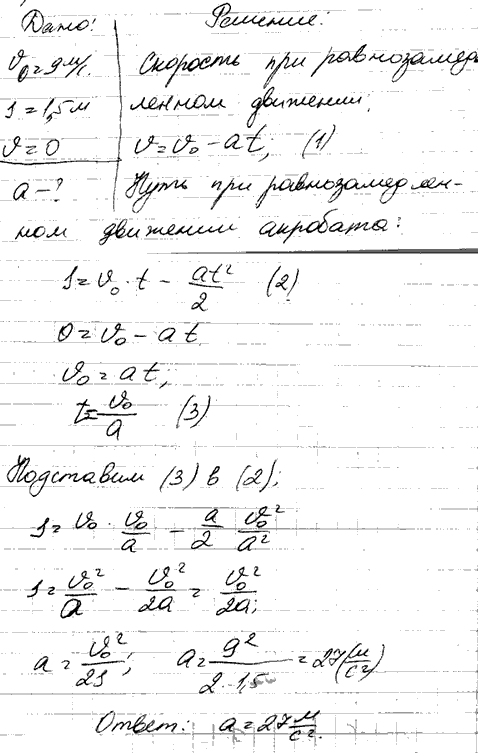 Дано: Решение:
v₀=9м/с. Скорость при равнозамед-
s=1,5м ленном движении;
v=0 v=v₀-at; (1)
a-? Путь при равнозамедлен-
ном движении акробата:
s=v₀·t - at²/2 (2)
0=v₀-at
v₀=at;
t=v₀/a (3)
Подставим (3) в (2);
s=v₀·v₀/a - a/2 v₀²/a²
s=v₀²/a - v₀²/2a = v₀²/2a;
a=v₀²/2s; a=9²/2·1,5 = 27(м/с²)
Ответ: a=27 м/с².